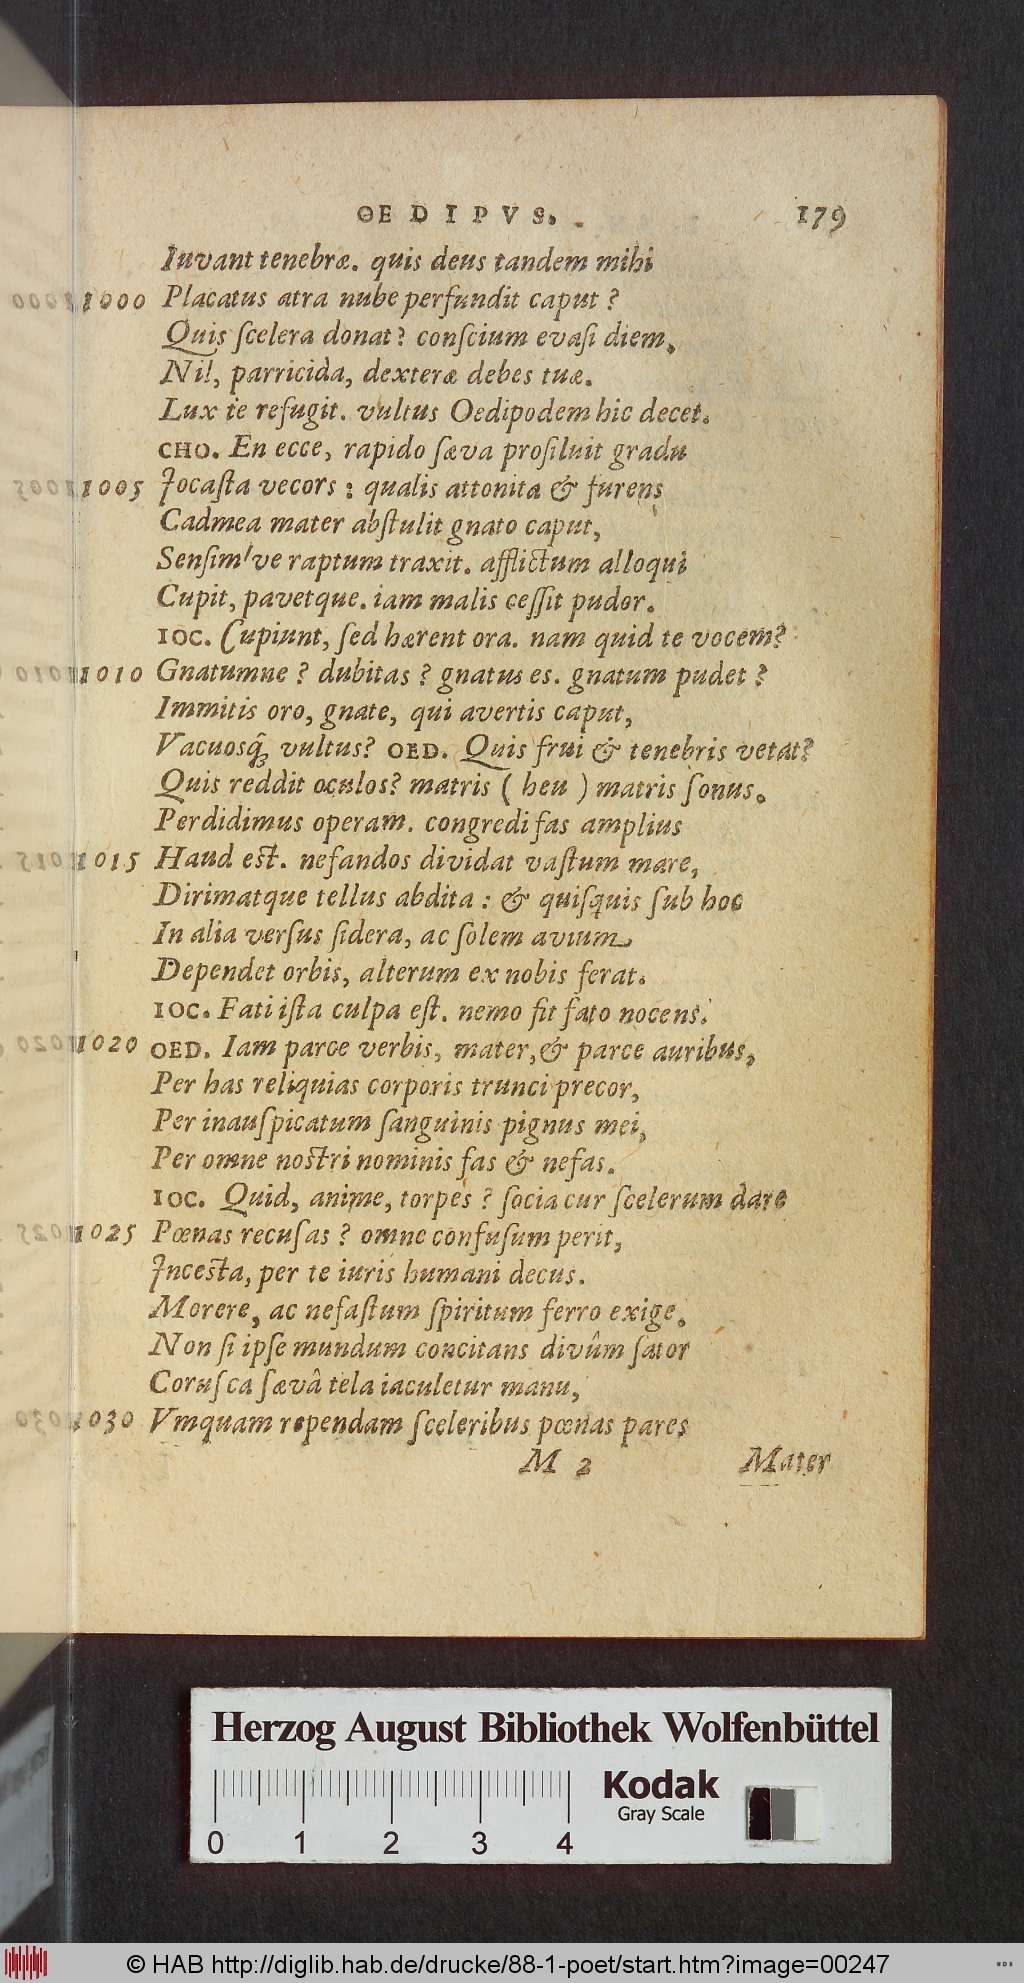 OEDIPVS. 179
Iuvant tenebræ. quis deus tandem mihi
1000 Placatus atra nube perfundit caput?
Quis ſcelera donat? conſcium evaſi diem,
Nil, parricida, dexteræ debes tuæ.
Lux te refugit. vultus Oedipodem hic decet.
CHO. En ecce, rapido ſæva proſiluit gradu
1005 Jocaſta vecors: qualis attonita & furens
Cadmea mater abſtulit gnato caput,
Senſim've raptum traxit. afflictum alloqui
Cupit, pavetque. iam malis ceſſit pudor.
IOC. Cupiunt, ſed hærent ora. nam quid te vocem?
1010 Gnatumne? dubitas? gnatus es. gnatum pudet?
Immitis oro, gnate, qui avertis caput,
Vacuosq́; vultus? OED. Quis frui & tenebris vetat?
Quis reddit oculos? matris (heu) matris ſonus.
Perdidimus operam. congredi fas amplius
1015 Haud eſt. nefandos dividat vaſtum mare,
Dirimatque tellus abdita: & quiſquis ſub hoc
In alia verſus ſidera, ac ſolem avium
Dependet orbis, alterum ex nobis ferat.
IOC. Fati iſta culpa eſt. nemo fit fato nocens.
1020 OED. Iam parce verbis, mater, & parce auribus,
Per has reliquias corporis trunci precor,
Per inauſpicatum ſanguinis pignus mei,
Per omne noſtri nominis fas & nefas.
IOC. Quid, anime, torpes? ſocia cur ſcelerum dare
1025 Pœnas recuſas? omne confuſum perit,
Inceſta, per te iuris humani decus.
Morere, ac nefaſtum ſpiritum ferro exige.
Non ſi ipſe mundum concitans divûm ſator
Coruſca ſævâ tela iaculetur manu,
1030 Vmquam rependam ſceleribus pœnas pares
M 2 Mater
Herzog August Bibliothek Wolfenbüttel
Kodak
Gray Scale
0 1 2 3 4
© HAB http://diglib.hab.de/drucke/88-1-poet/start.htm?image=00247